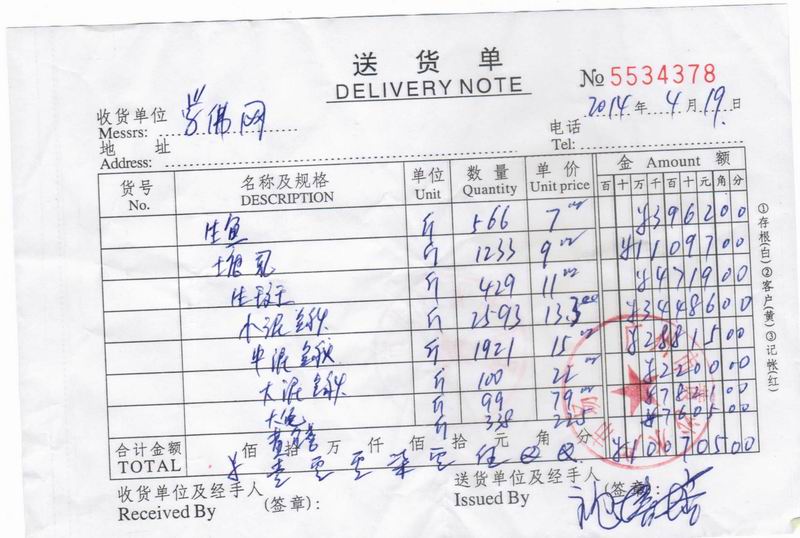 送 货 单
DELIVERY NOTE
№ 5534378
收货单位 佛网
Messrs:
2014 年 4 月 19 日
地 址
Address:
电话
Tel:
货号 名称及规格 单位 数量 单价 金 Amount 额
No. DESCRIPTION Unit Quantity Unit price 百 十 万 千 百 十 元 角 分
生鱼 斤 566 7.00 ¥3962 00
斤 1233 9.00 ¥11097 00
斤 429 11.00 ¥4719 00
小泥鳅 斤 2593 13.3 ¥34486 00
中泥鳅 斤 1921 15.00 ¥28815 00
大泥鳅 斤 100 22.00 ¥2200 00
斤 99 79.00 ¥7821 00
斤 338 22.5 ¥7605 00
合计金额 佰 拾 万 仟 佰 拾 元 角 分
TOTAL ¥100705 00
收货单位及经手人 (签章):
Received By
送货单位及经手人 (签章):
Issued By
①存根(白)②客户(黄)③记帐(红)